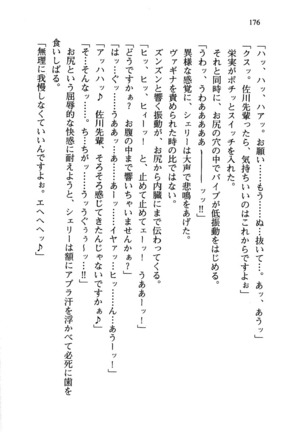 176
「ハッ、ハッ、ハアッ。お願い……もう……ぬ、抜いて……。あッ、あうッ」
「クスッ。佐川先輩ったら、気持ちいいのはこれからですよぉ」
栄実がポチッとスイッチを入れた。
それと同時に、お尻の穴の中でバイブが低振動をはじめる。
「うわッ……、うわああああぁ——ッ！」
異様な感覚に、シェリーは大声で悲鳴をあげた。
ヴァギナを責められた時の比ではない。
ズンズンと響く振動が、お尻から内臓にまで伝わってくる。
「ヒッ、ヒッ、ヒィーッ！　と、止めて止めてェーッ！　うああーッ！」
「どうですかぁ？　お腹の中まで響いちゃいませんかぁ？」
「はッ…ぐッ……うああッ……あ……イヤァッ…ヒッ……ん…あうーッ！」
「アッハハッ♪　佐川先輩、そろそろ感じてきたんじゃないですかぁ？」
「そ…そんなッ……。ち…ちがッ……うッうぐぅぅ〜ッ……！」
お尻という屈辱的な快感に耐えようと、シェリーは額にアブラ汗を浮かべて必死に歯を
食いしばる。
「無理に我慢しなくていいんですよぉ。エヘヘッ♪」